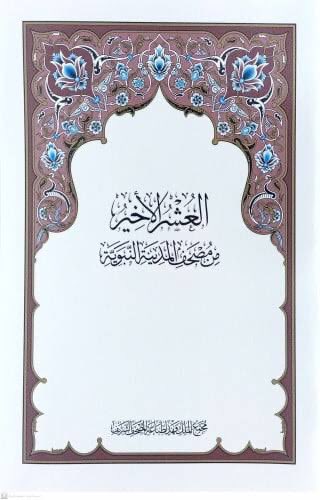 العشر الأخير
من مصحف المدينة النبوية
مجمع الملك فهد لطباعة المصحف الشريف